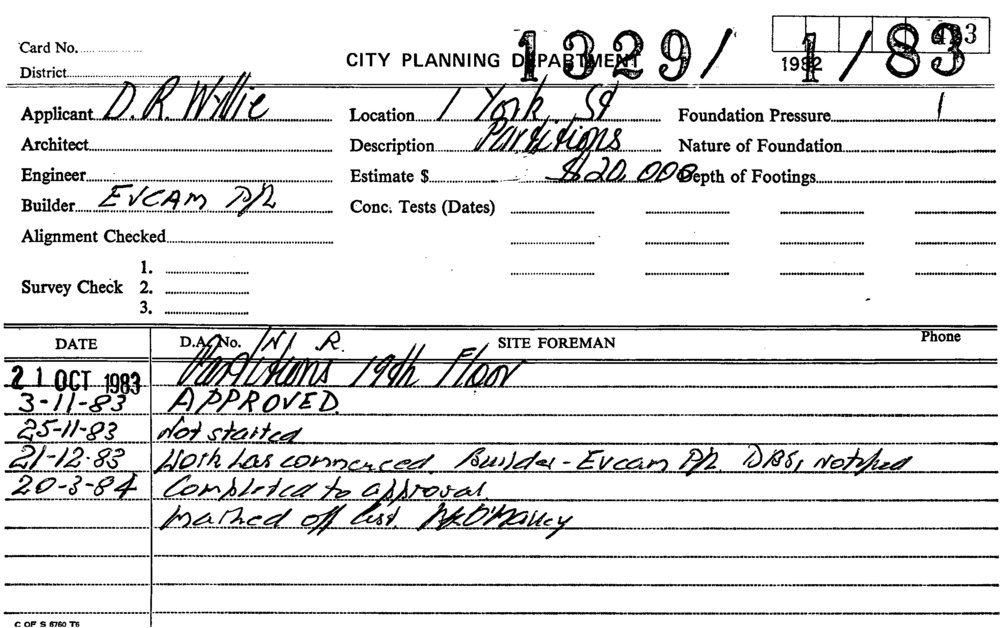 Card No.
CITY PLANNING DEPARTMENT 1329/1/83
1982
District
Applicant D. R. Wyllie Location 1 York St Foundation Pressure
Architect Description Partitions Nature of Foundation
Engineer Estimate $ $20,000 Depth of Footings
Builder EVCAM P/L Conc. Tests (Dates)
Alignment Checked
1.
Survey Check 2.
3.
DATE D.A. No. N. R. SITE FOREMAN Phone
21 OCT 1983 Partitions 19th Floor
3-11-83 APPROVED.
25-11-83 Not started
21-12-83 Work has commenced. Builder - Evcam P/L. notified
20-3-84 Completed to approval.
Marked off list.
C OF S 6760 T6